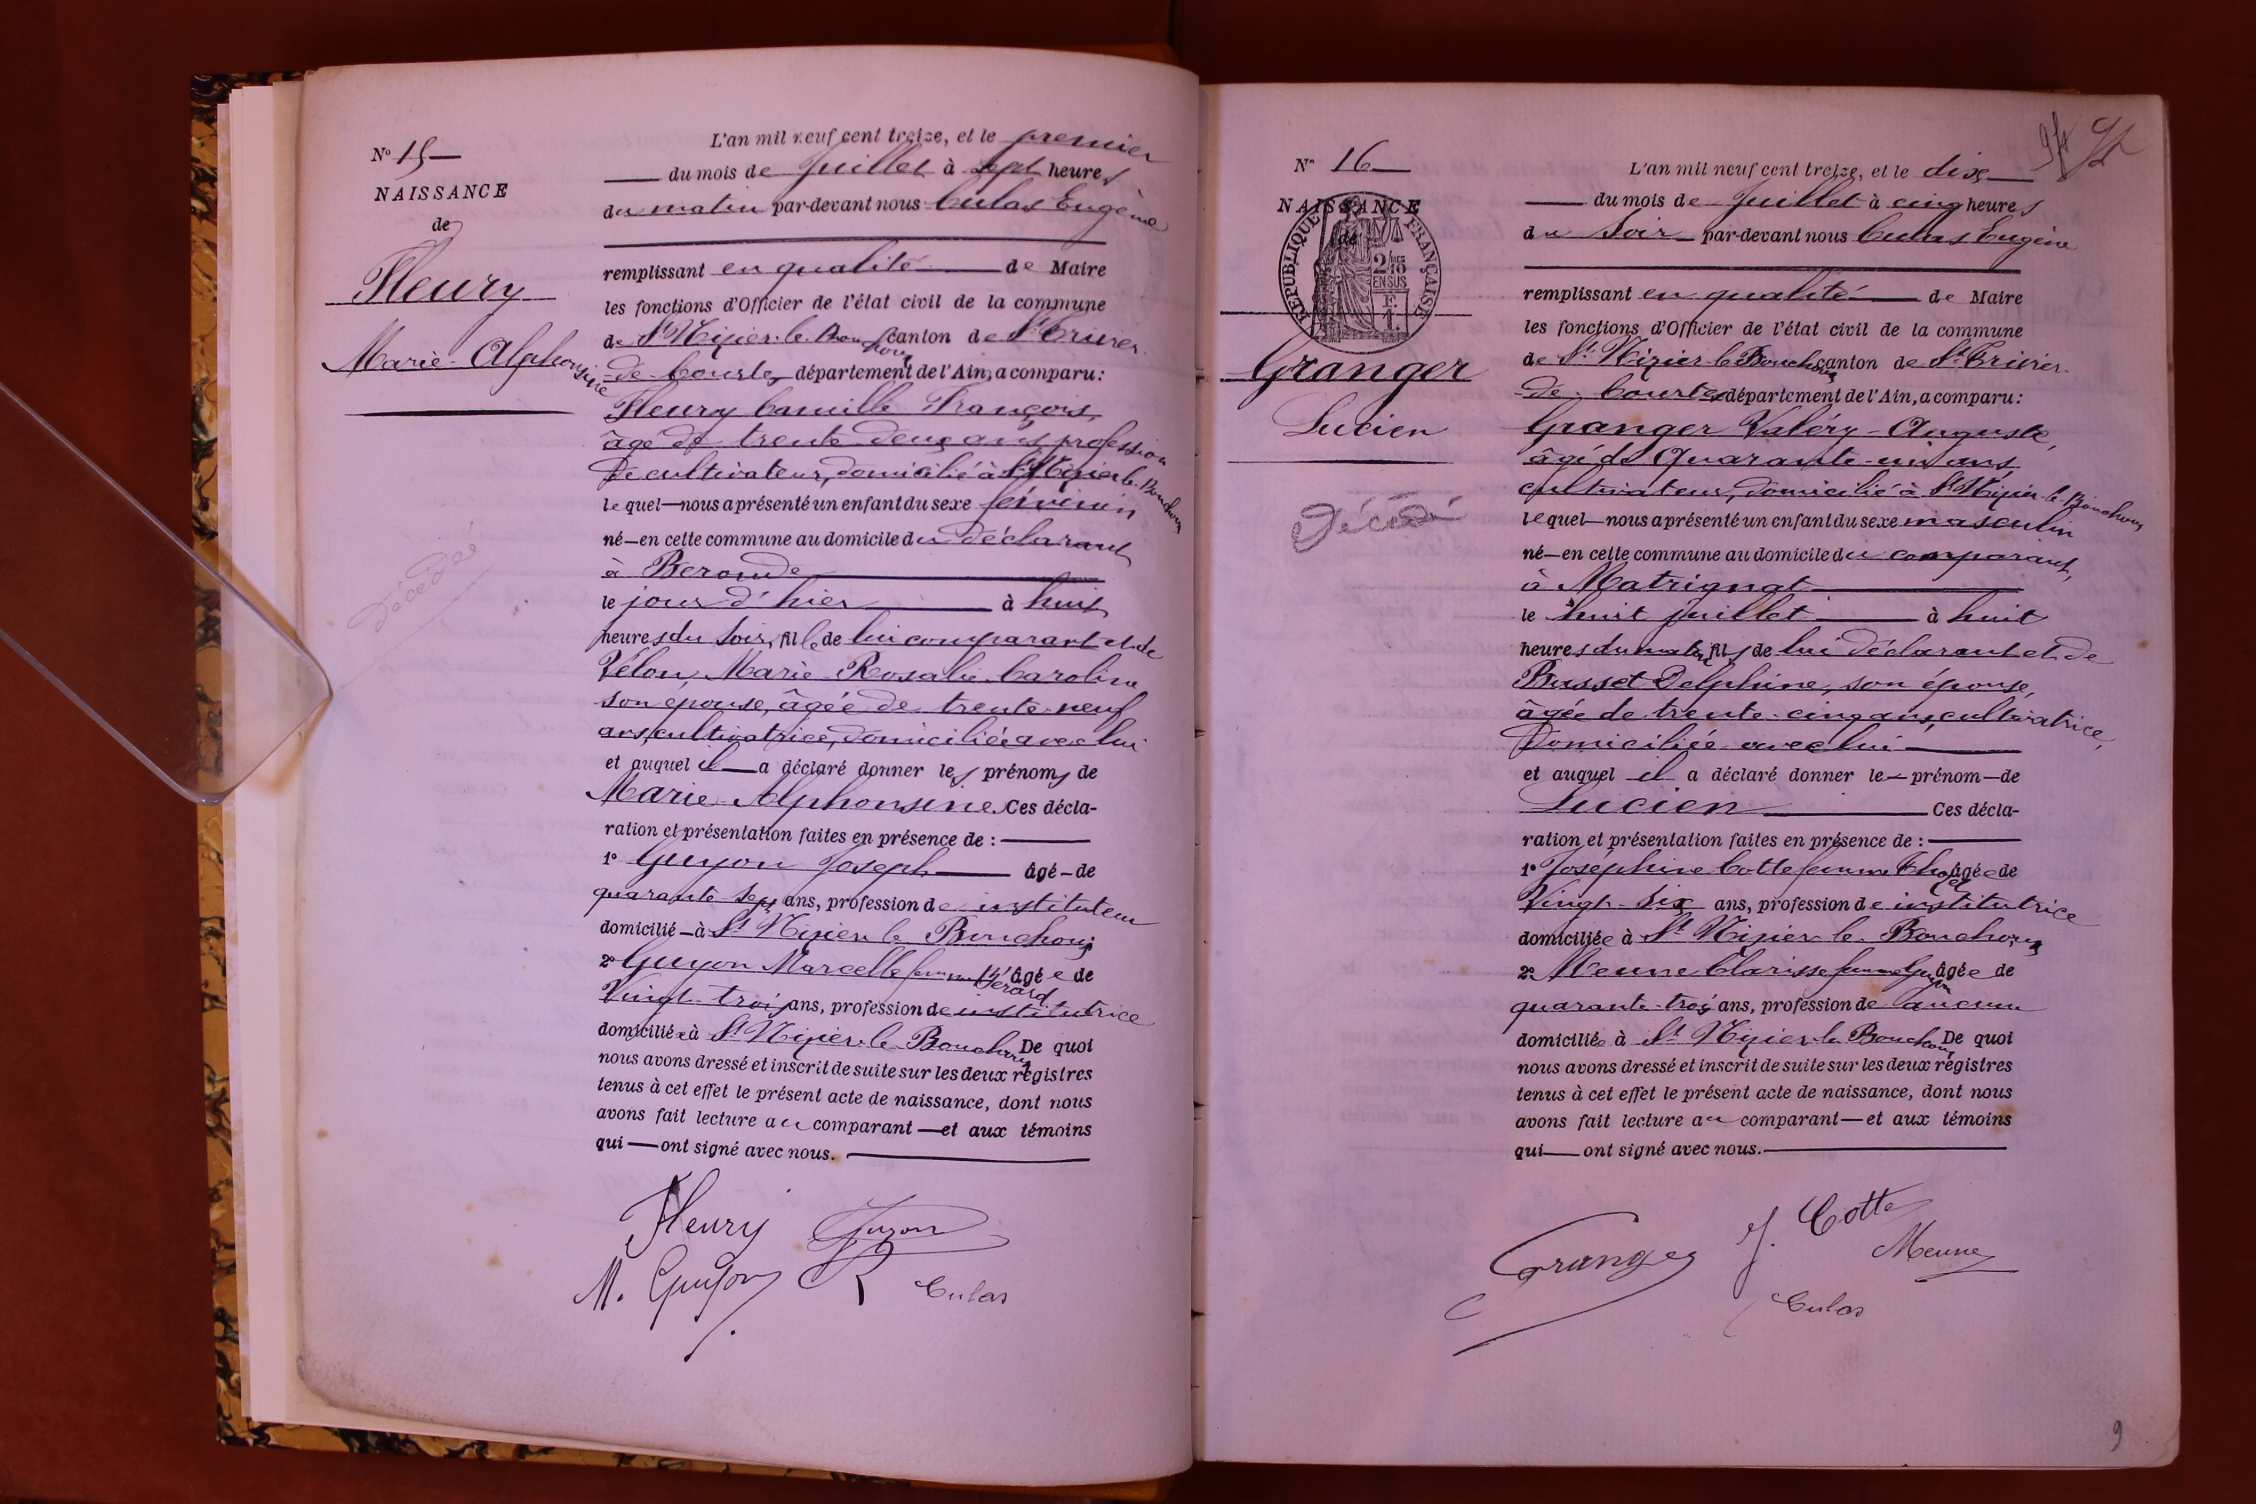 N° 15
NAISSANCE
de
Fleury
Marie-Alphonsine
Décédée
L'an mil neuf cent treize, et le premier
du mois de Juillet à sept heures
du matin par-devant nous Culas Eugène
remplissant en qualité de Maire
les fonctions d'Officier de l'état civil de la commune
de St Nizier-le-Bouchoux canton de St Trivier-
de-Courtes, département de l'Ain, a comparu :
Fleury Camille François,
âgé de trente-deux ans, profession
de cultivateur, domicilié à St Nizier-le-Bouchoux
lequel nous a présenté un enfant du sexe féminin
né en cette commune au domicile du déclarant
à Beronde
le jour d'hier à huit
heures du soir, fille de lui comparant et de
Vélon, Marie-Rosalie-Caroline
son épouse, âgée de trente-neuf
ans, cultivatrice, domiciliée avec lui
et auquel il a déclaré donner les prénoms de
Marie-Alphonsine. Ces décla-
ration et présentation faites en présence de :
1° Guyon Joseph âgé de
quarante-sept ans, profession de instituteur
domicilié à St Nizier-le-Bouchoux
2° Guyon Marcelle femme Gérard âgée de
Vingt-trois ans, profession de institutrice
domiciliée à St Nizier-le-Bouchoux De quoi
nous avons dressé et inscrit de suite sur les deux registres
tenus à cet effet le présent acte de naissance, dont nous
avons fait lecture au comparant et aux témoins
qui ont signé avec nous.
Fleury Guyon
M. Guyon Culas
94
N° 16
NAISSANCE
de
RÉPUBLIQUE FRANÇAISE
2/10
EN SUS
Granger
Lucien
Décédé
L'an mil neuf cent treize, et le dix
du mois de Juillet à cinq heures
du Soir par-devant nous Culas Eugène
remplissant en qualité de Maire
les fonctions d'Officier de l'état civil de la commune
de St Nizier-le-Bouchoux canton de St Trivier-
de-Courtes département de l'Ain, a comparu :
Granger Valéry-Auguste,
âgé de Quarante-un ans
cultivateur, domicilié à St Nizier-le-Bouchoux
lequel nous a présenté un enfant du sexe masculin
né en cette commune au domicile du comparant,
à Matrignat
le huit juillet à huit
heures du matin fils de lui déclarant et de
Busset Delphine, son épouse,
âgée de trente-cinq ans, cultivatrice,
Domiciliée avec lui
et auquel il a déclaré donner le prénom de
Lucien Ces décla-
ration et présentation faites en présence de :
1° Joséphine Cotte femme âgée de
Vingt-six ans, profession de institutrice
domiciliée à St Nizier-le-Bouchoux
2° Meune Clarisse femme Guyon âgée de
quarante-trois ans, profession de aucune
domiciliée à St Nizier-le-Bouchoux De quoi
nous avons dressé et inscrit de suite sur les deux registres
tenus à cet effet le présent acte de naissance, dont nous
avons fait lecture au comparant et aux témoins
qui ont signé avec nous.
Granger J. Cotte
Meune
Culas
9